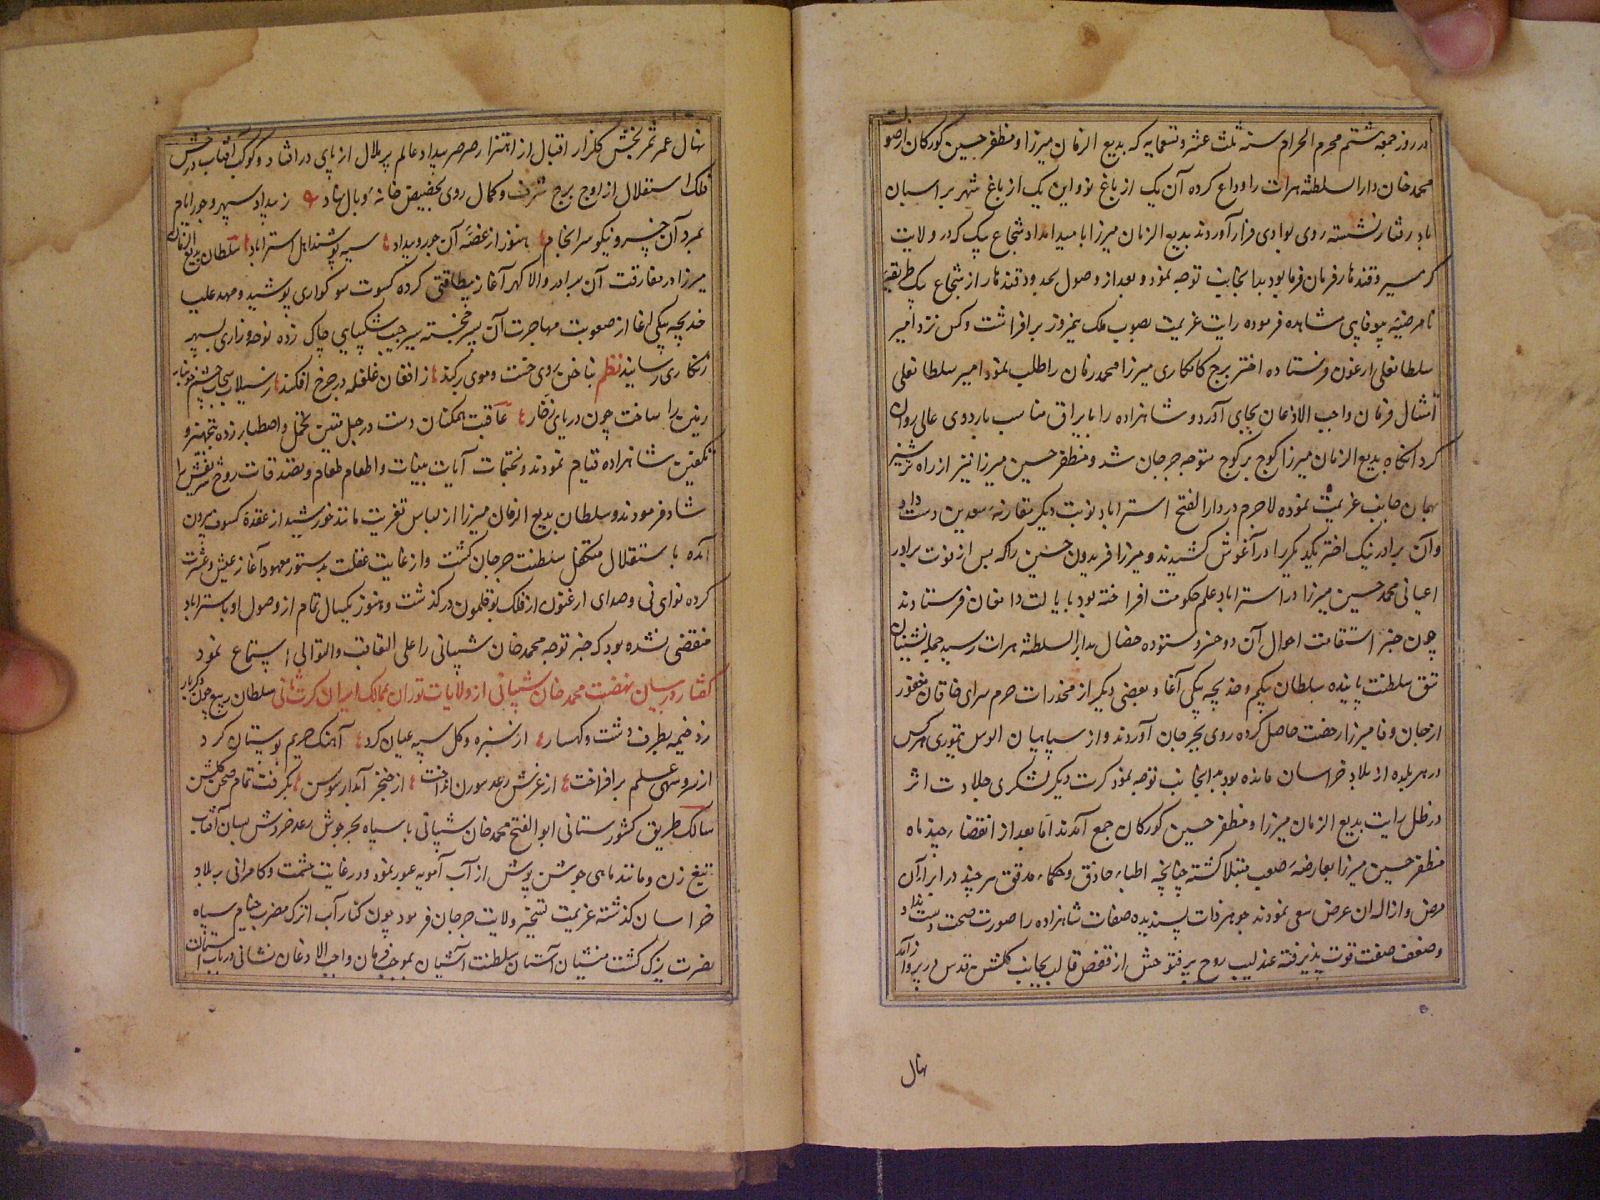 در روز جمعه هشتم محرم الحرام سنه ثلث عشر و تسعمایه که بدیع الزمان میرزا و مظفر حسین کورکان از صولت
محمد خان دار السلطنه هرات را وداع کرده آن یک از باغ نو و این یک از باغ شهر بر اسبان
باد رفتار نشسته روی بوادی فرار آوردند بدیع الزمان میرزا بامید امداد شجاع بیک که در ولایت
کرمسیر و قندهار فرمان فرما بود بدانجانب توجه نمود و بعد از وصول بحدود قندهار از شجاع بیک طریقه
نامرضیه بیوفایی مشاهده فرموده رایت عزیمت بصوب ملک نیمروز برافراشت و کس نزد امیر
سلطانعلی ارغون فرستاده اختر برج کامکاری میرزا محمد زمان را طلب نمود امیر سلطانعلی
امتثال فرمان واجب الاذعان بجای آورد و شاهزاده را با یراق مناسب باردوی عالی روان
کرد آنکاه بدیع الزمان میرزا کوچ بر کوچ متوجه جرجان شد و مظفر حسین میرزا نیز از راه ترشیز
بهمان جانب عزیمت نموده لاجرم در دار الفتح استراباد نوبت دیکر مقارنه سعدین دست داد
و آن برادر نیک اختر یکدیکر را در آغوش کشیدند و میرزا فریدون حسین را که پس از فوت برادر
اعیانی محمد حسین میرزا در استراباد علم حکومت افراخته بود بایالت دامغان فرستادند
چون خبر استقامت احوال آن دو خسرو ستوده خصال بدار السلطنه هرات رسید جمله نشینان
تتق سلطنت پاینده سلطان بیکم و خدیجه بیکی آغا و بعضی دیکر از مخدرات حرم سرای خاقان مغفور
از خان وفا میرزا رخصت حاصل کرده روی بجرجان آوردند و از سپاهیان الوس تیموری هر کس
در هر بلده از بلاد خراسان مانده بود بدانجانب توجه نمود کرت دیکر لشکری جلادت اثر
در ظل رایت بدیع الزمان میرزا و مظفر حسین کورکان جمع آمدند اما بعد از انقضاء چند ماه
مظفر حسین میرزا بعارضه صعب مبتلا کشته چنانچه اطباء حاذق و حکماء مدقق هر چند در ابراء آن
مرض و ازاله ان عرض سعی نمودند جوهر ذات پسندیده صفات شاهزاده را صورت صحت دست نداد و
و ضعف صفت قوت پذیرفته عندلیب روح پر فتوحش از قفص قالب بجانب کلشن قدس در پرواز آمد
نهال
نهال عمر ثمر بخش کلزار اقبال از اهتزاز صرصر بیداد عالم پر ملال از پای در افتاد و کوکب آفتاب درخش
فلک استقلال از اوج برج شرف و کمال روی بحضیض خانه وبال نهاد ز بیداد سپهر و جور ایام
بمرد آن خسرو نیکو سرانجام هنوز از غصه آن جور و بیداد سیه پوشند اهل استراباد سلطان بدیع الزمان
میرزا در مفارقت آن برادر والا کهر آغاز بیطاقتی کرده کسوت سوکواری پوشید و مهد علیا
خدیجه بیکی آغا از صعوبت مهاجرت آن پسر خجسته سیر جیب شکیبایی چاک زده نوحه و زاری بسپهر
زنکاری رسانید نظم بناخن روی خست و موی برکند از افغان غلغله در چرخ افکند ز سیلاب چشم خونابه
زمین را ساخت چون دریای زخار عاقبت همکنان دست در حبل متین تحمل و اصطبار زده تجهیز و
تکفین شاهزاده قیام نمودند و بختمات آیات بینات و اطعام طعام و تصدقات روح شریفش را
شاد فرمودند و سلطان بدیع الزمان میرزا از لباس تعزیت مانند خورشید از عقده کسوف بیرون
آمده باستقلال متکفل سلطنت جرجان کشت و از غایت غفلت بدستور معهود آغاز عیش و عشرت
کرده نوای نی و صدای ارغنون از فلک بوقلمون درکذشت و هنوز یکسال تمام از وصول او باستراباد
منقضی نشده بود که خبر توجه محمد خان شیبانی را علی التعاقب و التوالی استماع نمود
کفتار در بیان نهضت محمد خان شیبانی از ولایات توران بممالک ایران کرت ثانی سلطان ربیع چون دکر بار
زد خیمه بطرف دشت و کهسار از سبزه و کل سپه عیان کرد آهنک حریم بوستان کرد
از سرو سهی علم برافراخت از غرش رعد سورن انداخت از خنجر آبدار سوسن بکرفت تمام صحن کلشن
سالک طریق کشورستانی ابو الفتح محمد خان شیبانی با سپاه بحر جوش رعد خروش بسان آفتاب
تیغ زن و مانند ماهی جوشن پوش از آب آمویه عبور نمود و در غایت حشمت و کامرانی ببلاد
خراسان کذشته عزیمت تسخیر ولایت جرجان فرمود چون کنار آب اترک مضرب خیام سپاه
نصرت یزک کشت منشیان آستان سلطنت آشیان بموجب فرمان واجب الاذعان نشانی در باب استمالت